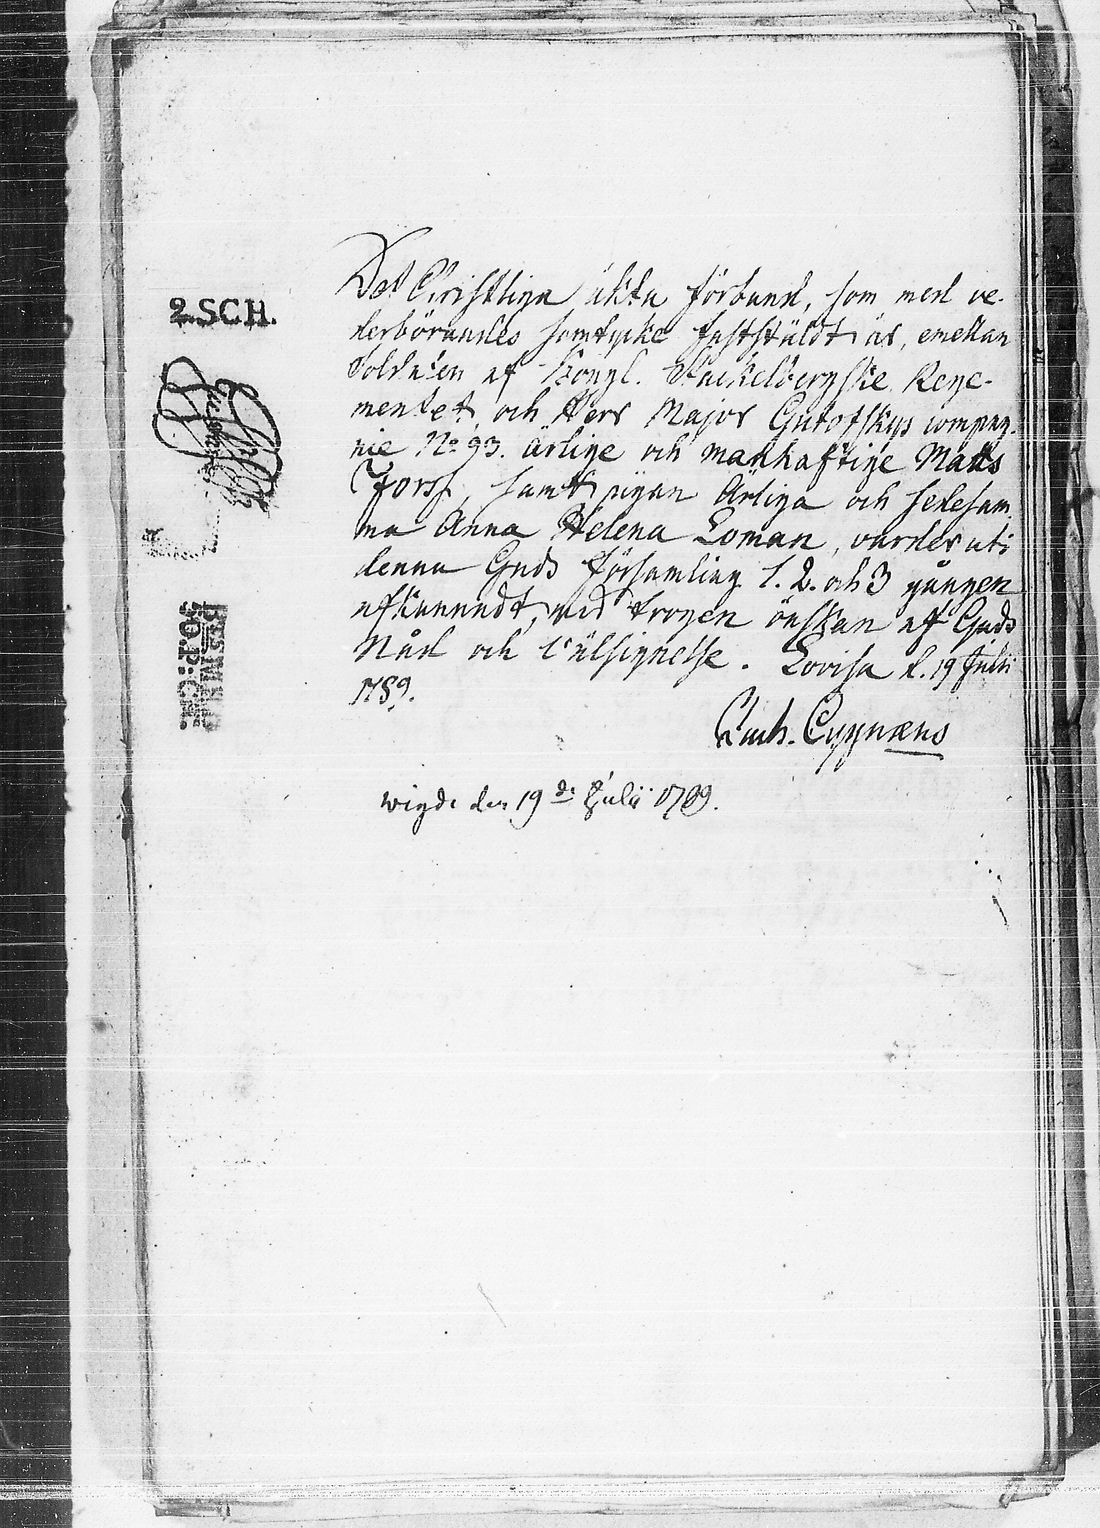 2. SCH.
Det Christliga äkta förbund, som med ve-
derbörandes samtycke fastställdt är, emellan
Soldaten af Kongl. Stackelbergske Rege-
mentet, och Herr Major Gutofskys compag-
nie No 93. ärlige och manhaftige Matts
Forss, samt pigan Ärliga och sedesam
ma Anna Helena Loman, varder uti
denna Guds församling 1. 2. och 3 gången
afkunnadt, med trogen önskan af Guds
Nåd och Välsignelse. Lovisa d. 19 Julii
1789.
Zach. Cygnæus
wigde den 19de Julii 1789.